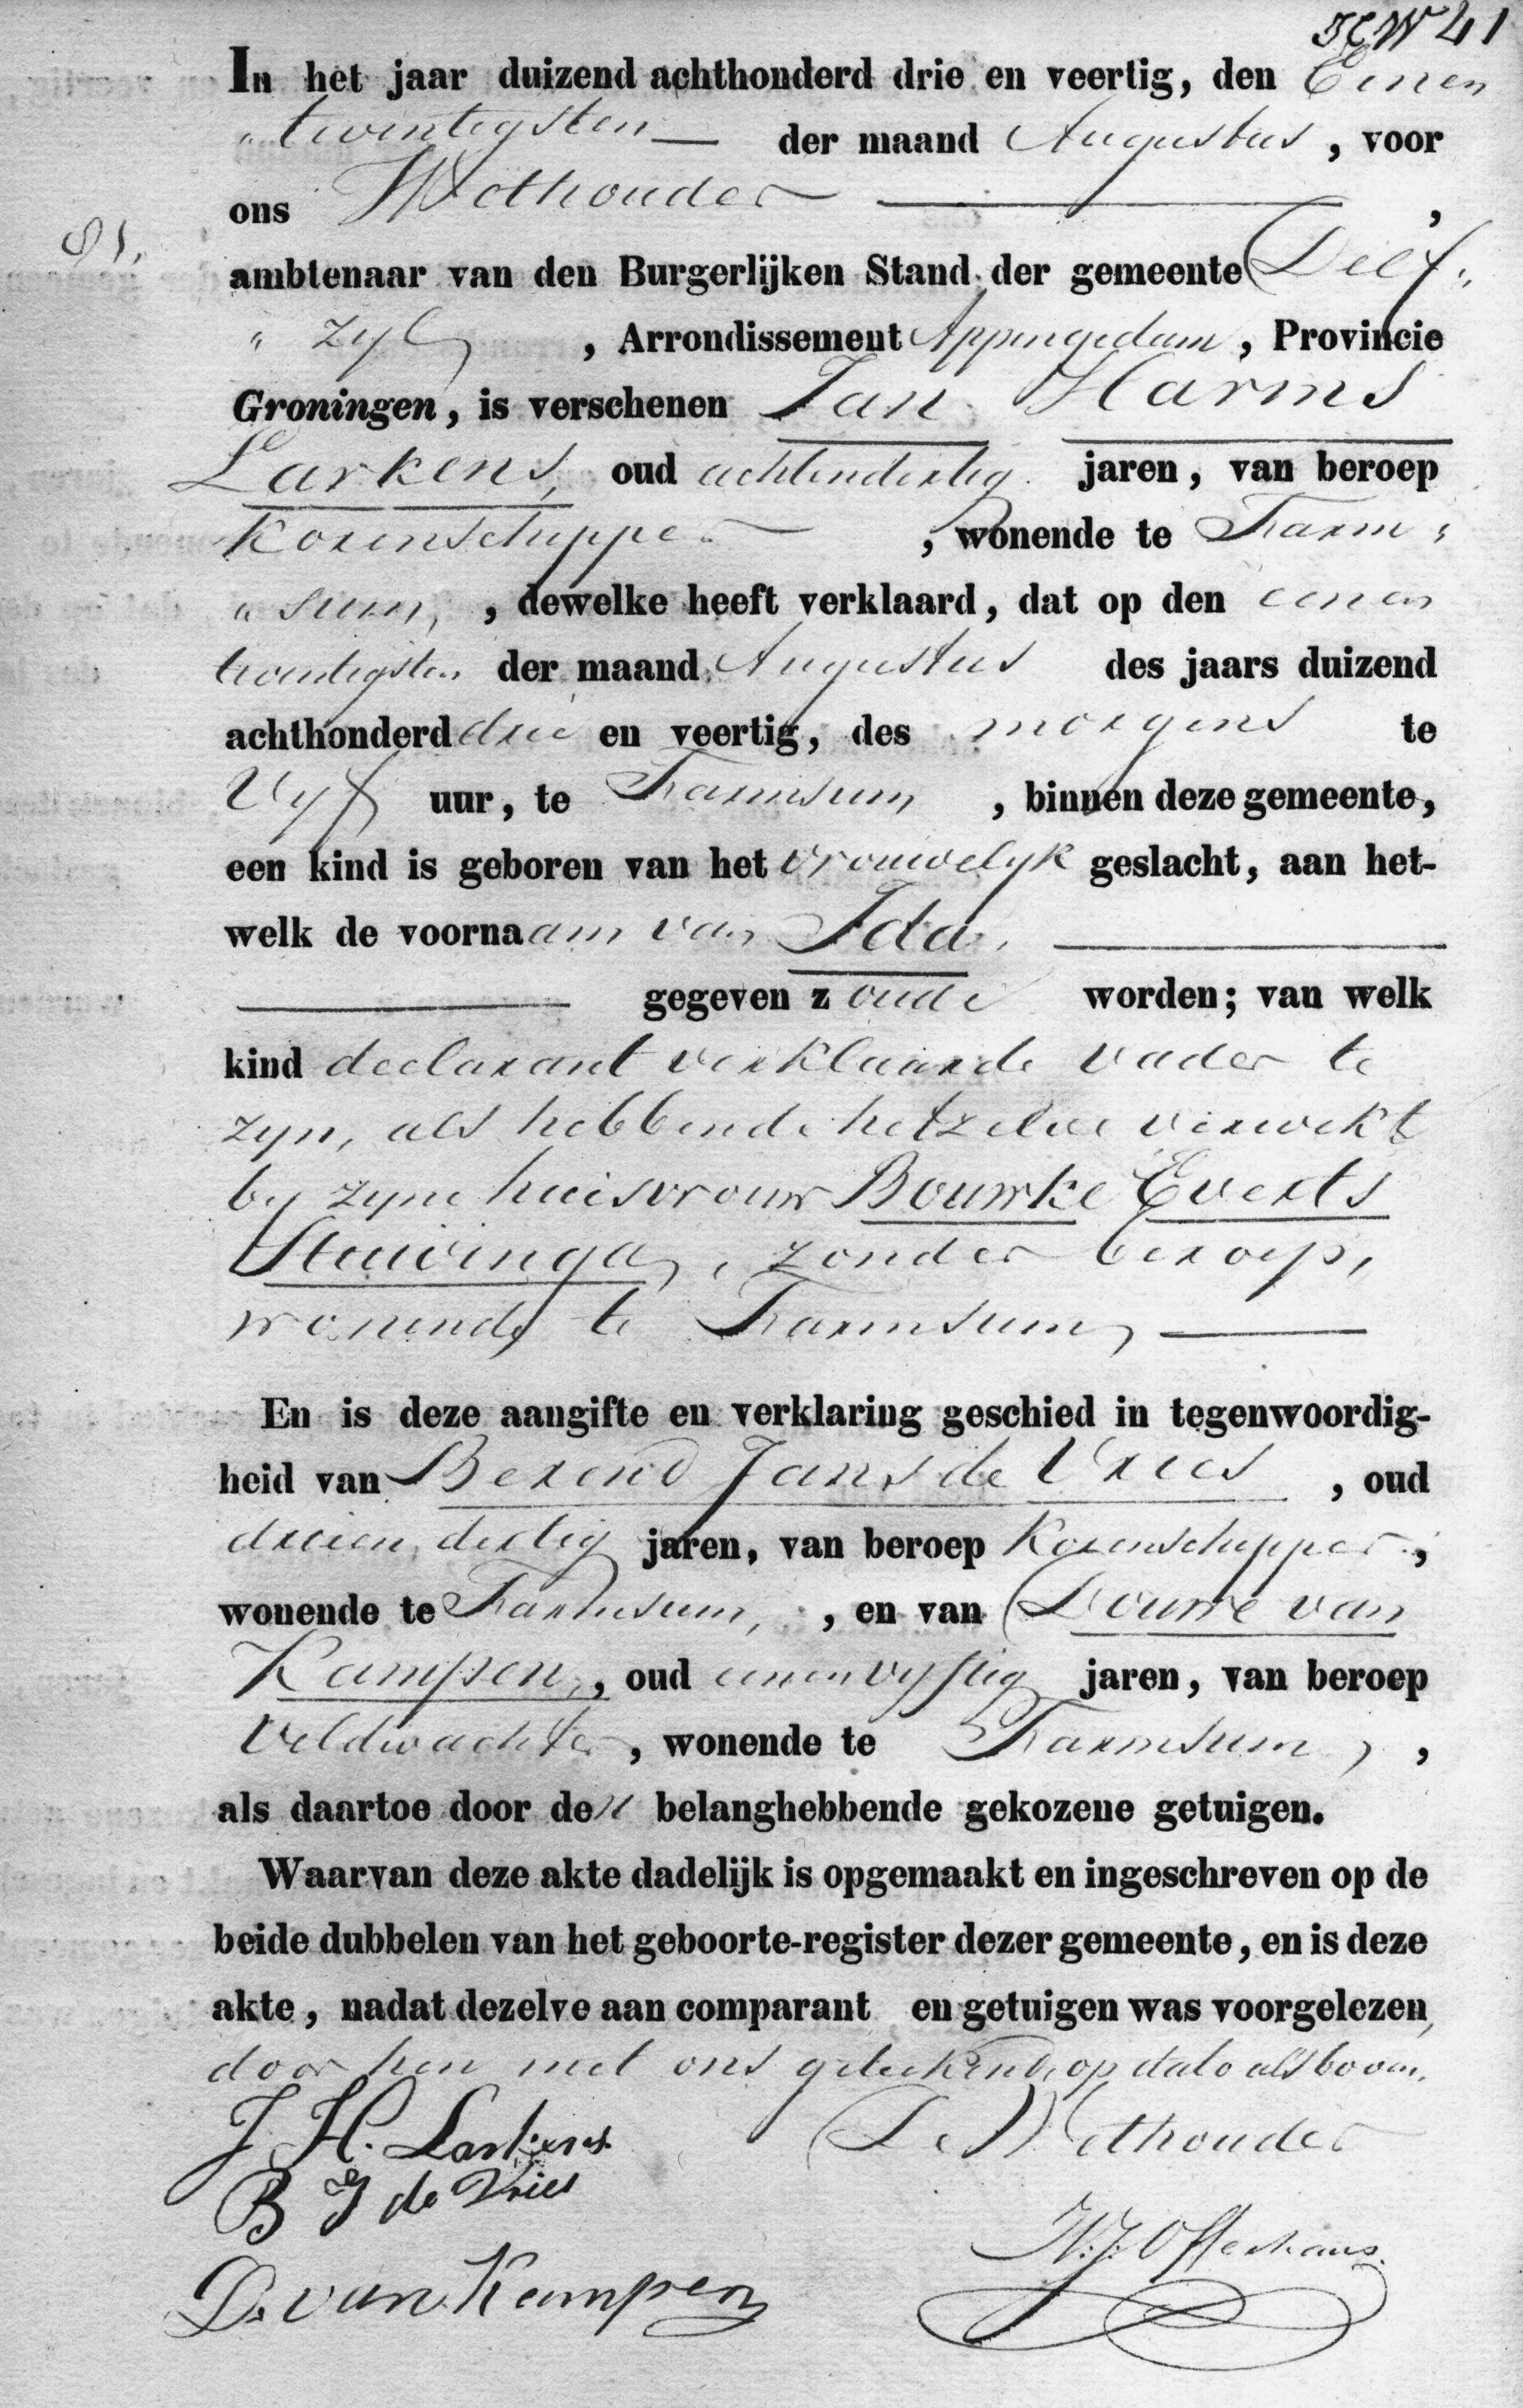 41
In het jaar duizend achthonderd drie en veertig, den Eenen
"twintigsten — der maand Augustus, voor
ons Wethouder — ,
91.
ambtenaar van den Burgerlijken Stand der gemeente Delf"
"zyl, Arrondissement Appingedam, Provincie
Groningen, is verschenen Jan Harms
Larkens, oud achtendertig jaren, van beroep
Korenschipper, wonende te Farm"
"sum, , dewelke heeft verklaard, dat op den eenen
twintigsten der maand Augustus des jaars duizend
achthonderd drie en veertig, des morgens te
Vyf uur, te Farmsum, binnen deze gemeente,
een kind is geboren van het vrouwelyk geslacht, aan het-
welk de voornaam van Ida, —
— gegeven zoude worden; van welk
kind declarant verklaarde vader te
zyn, als hebbende hetzelve verwekt
by zyne huisvrouw Bouwke Everts
Stuivinga, zonder beroep,
wonende te Farmsum, —
En is deze aangifte en verklaring geschied in tegenwoordig-
heid van Berend Jans de Vries, oud
drieen dertig jaren, van beroep Korenschipper,
wonende te Farmsum, , en van Douwe van
Kampen, , oud eenenvyftig jaren, van beroep
Veldwachter, wonende te Farmsum, ,
als daartoe door den belanghebbende gekozene getuigen.
Waarvan deze akte dadelijk is opgemaakt en ingeschreven op de
beide dubbelen van het geboorte-register dezer gemeente, en is deze
akte, nadat dezelve aan comparant en getuigen was voorgelezen,
door hen met ons geteekend, op dato als boven.
J. H. Larkens De Wethouder
B J de Vries
D. van Kampen